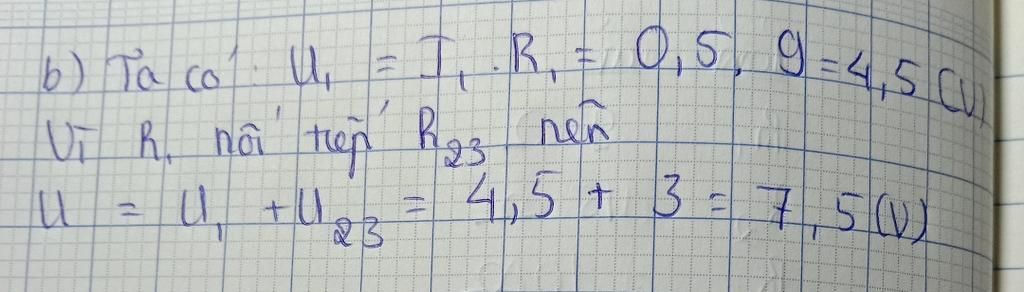 b) Ta có: U₁ = I₁ . R₁ = 0,5. 9 = 4,5 (V)
Vì R₁ nối tiếp R₂₃ nên
U = U₁ + U₂₃ = 4,5 + 3 = 7,5 (V)